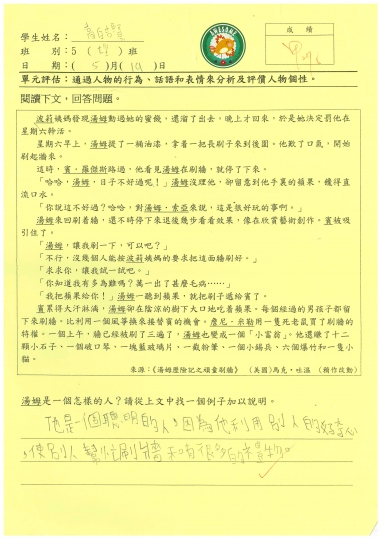 學生姓名：
成績
班　別：5（　）班
日　期：（5）月（19）日
單元評估：通過人物的行為、話語和表情來分析及評價人物個性。
閱讀下文，回答問題。
波莉姨媽發現湯姆動過她的蜜餞，還溜了出去，晚上才回來，於是她決定罰他在
星期六幹活。
星期六早上，湯姆提了一桶油漆，拿着一把長刷子來到後園。他歎了口氣，開始
刷起牆來。
這時，賓．羅傑斯路過，他看見湯姆在刷牆，就停了下來。
「哈哈，湯姆，日子不好過呢！」湯姆沒理他，卻留意到他手裏的蘋果，饞得直
流口水。
「你說這不好過？哈哈，對湯姆．索亞來說，這是很好玩的事啊。」
湯姆來回刷着牆，還不時停下來退後幾步看看效果，像在欣賞藝術創作。賓被吸
引住了。
「湯姆，讓我刷一下，可以吧？」
「不行，沒幾個人能按波莉姨媽的要求把這面牆刷好。」
「求求你，讓我試一試吧。」
「你知道我有多為難嗎？萬一出了甚麼毛病……」
「我把蘋果給你！」湯姆一聽到蘋果，就把刷子遞給賓了。
賓累得大汗淋漓，湯姆卻在陰涼的樹下大口地吃着蘋果。每個經過的男孩子都留
下來刷牆。比利用一個風箏換來接替賓的機會。詹尼．米勒用一隻死老鼠買了刷牆的
特權。一個上午，牆已經被刷了三遍了，湯姆也變成一個「小富翁」。他還賺了十二
顆小石子、一個破口琴、一塊藍玻璃片、一截粉筆、一個小錫兵、六個爆竹和一隻小
貓。
來源：《湯姆歷險記之頑童刷牆》　（美國）馬克．吐溫　（稍作改動）
湯姆是一個怎樣的人？請從上文中找一個例子加以說明。
他是一個聰明的人，因為他利用別人的好奇心
，使別人幫忙刷牆和得很多的禮物。